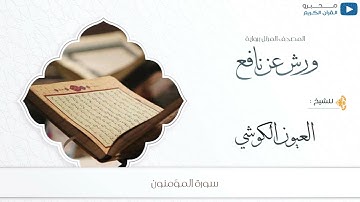 محبرو
القرآن الكريم
المصحف المرتل برواية
ورش عن نافع
للشيخ :
العيون الكوشي
سورة المؤمنون